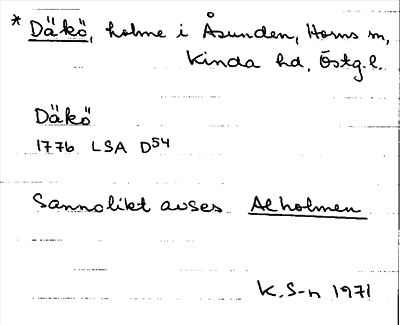 * Däkö, holme i Åsunden, Horns sn,
Kinda hd, Östg.l.
Däkö
1776 LSA D54
Sannolikt avses Alholmen
K.S-n 1971